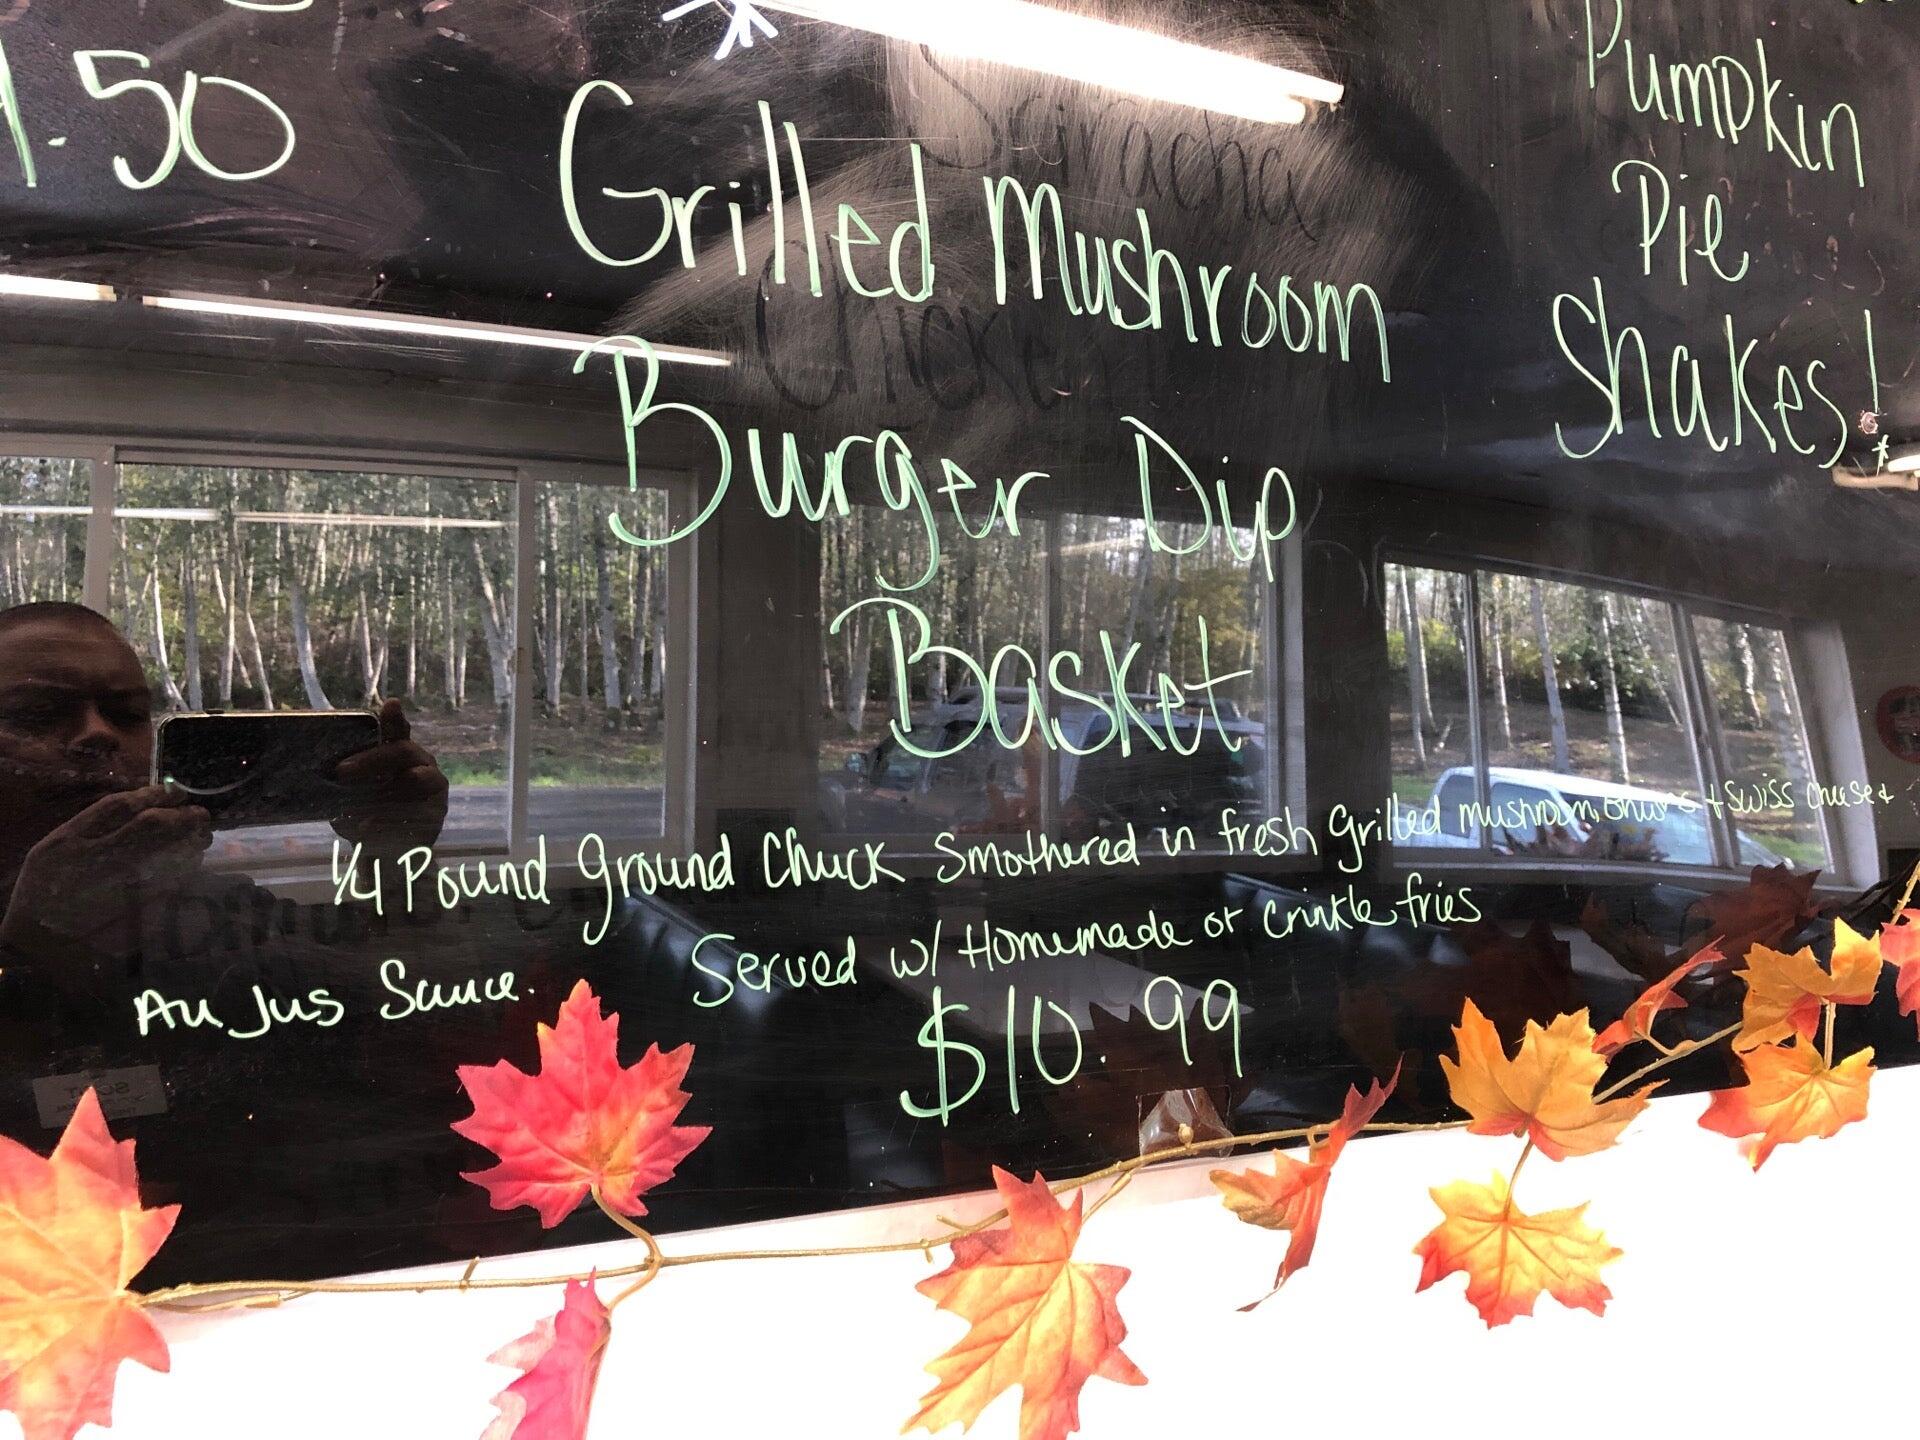 .50
Grilled Mushroom
Burger Dip
Basket
Pumpkin
Pie
Shakes!
Sriracha
Chicken
1/4 Pound ground Chuck Smothered in fresh grilled mushroom, onions + swiss cheese +
Au Jus Sauce. Served w/ Homemade or crinkle fries
$10.99